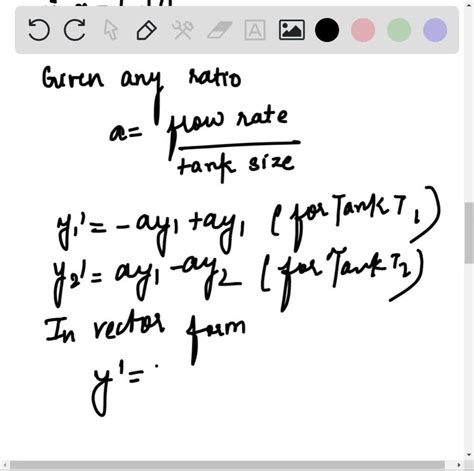 Given any ratio
a = flow rate
tank size
y₁' = -ay₁ + ay₁ (for Tank T₁)
y₂' = ay₁ - ay₂ (for Tank T₂)
In vector form
y' =